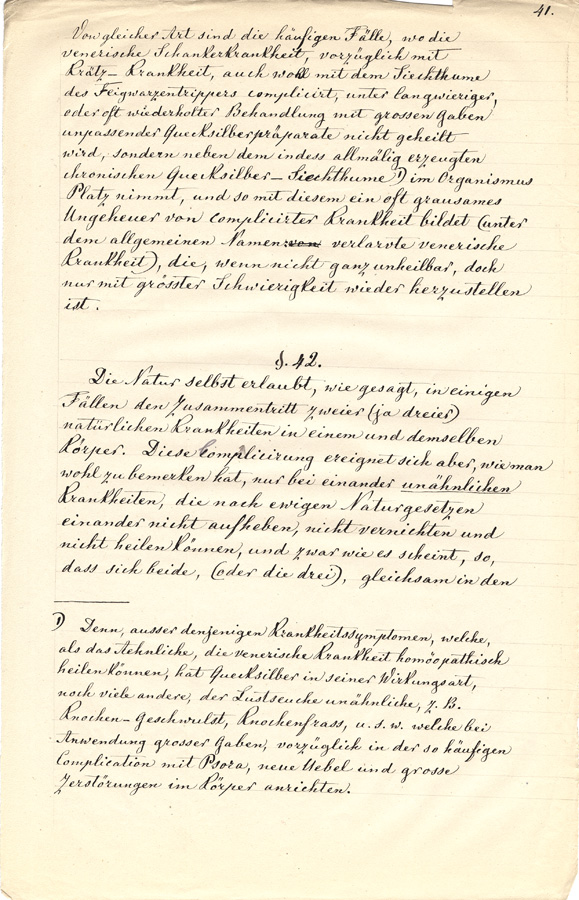 41.
Von gleicher Art sind die häufigen Fälle, wo die
venerische Schankerkrankheit, vorzüglich mit
Krätz-Krankheit, auch wohl mit dem Siechthume
des Feigwarzentrippers complicirt, unter langwieriger,
oder oft wiederholter Behandlung mit grossen Gaben
unpassender Quecksilberpräparate nicht geheilt
wird, sondern neben dem indess allmälig erzeugten
chronischen Quecksilber-Siechthume 1) im Organismus
Platz nimmt, und so mit diesem ein oft grausames
Ungeheuer von complicirter Krankheit bildet (unter
dem allgemeinen Namen: von verlarvte venerische
Krankheit), die, wenn nicht ganz unheilbar, doch
nur mit grösster Schwierigkeit wieder herzustellen
ist.
§. 42.
Die Natur selbst erlaubt, wie gesagt, in einigen
Fällen den Zusammentritt zweier (ja dreier)
natürlichen Krankheiten in einem und demselben
Körper. Diese Complicirung ereignet sich aber, wie man
wohl zu bemerken hat, nur bei einander unähnlichen
Krankheiten, die nach ewigen Naturgesetzen
einander nicht aufheben, nicht vernichten und
nicht heilen können, und zwar wie es scheint, so,
dass sich beide, (oder die drei), gleichsam in den
1) Denn, ausser denjenigen Krankheitssymptomen, welche,
als das Aehnliche, die venerische Krankheit homöopathisch
heilen können, hat Quecksilber in seiner Wirkungsart,
noch viele andere, der Lustseuche unähnliche, z. B.
Knochen-Geschwulst, Knochenfrass, u. s. w. welche bei
Anwendung grosser Gaben, vorzüglich in der so häufigen
Complication mit Psora, neue Uebel und grosse
Zerstörungen im Körper anrichten.